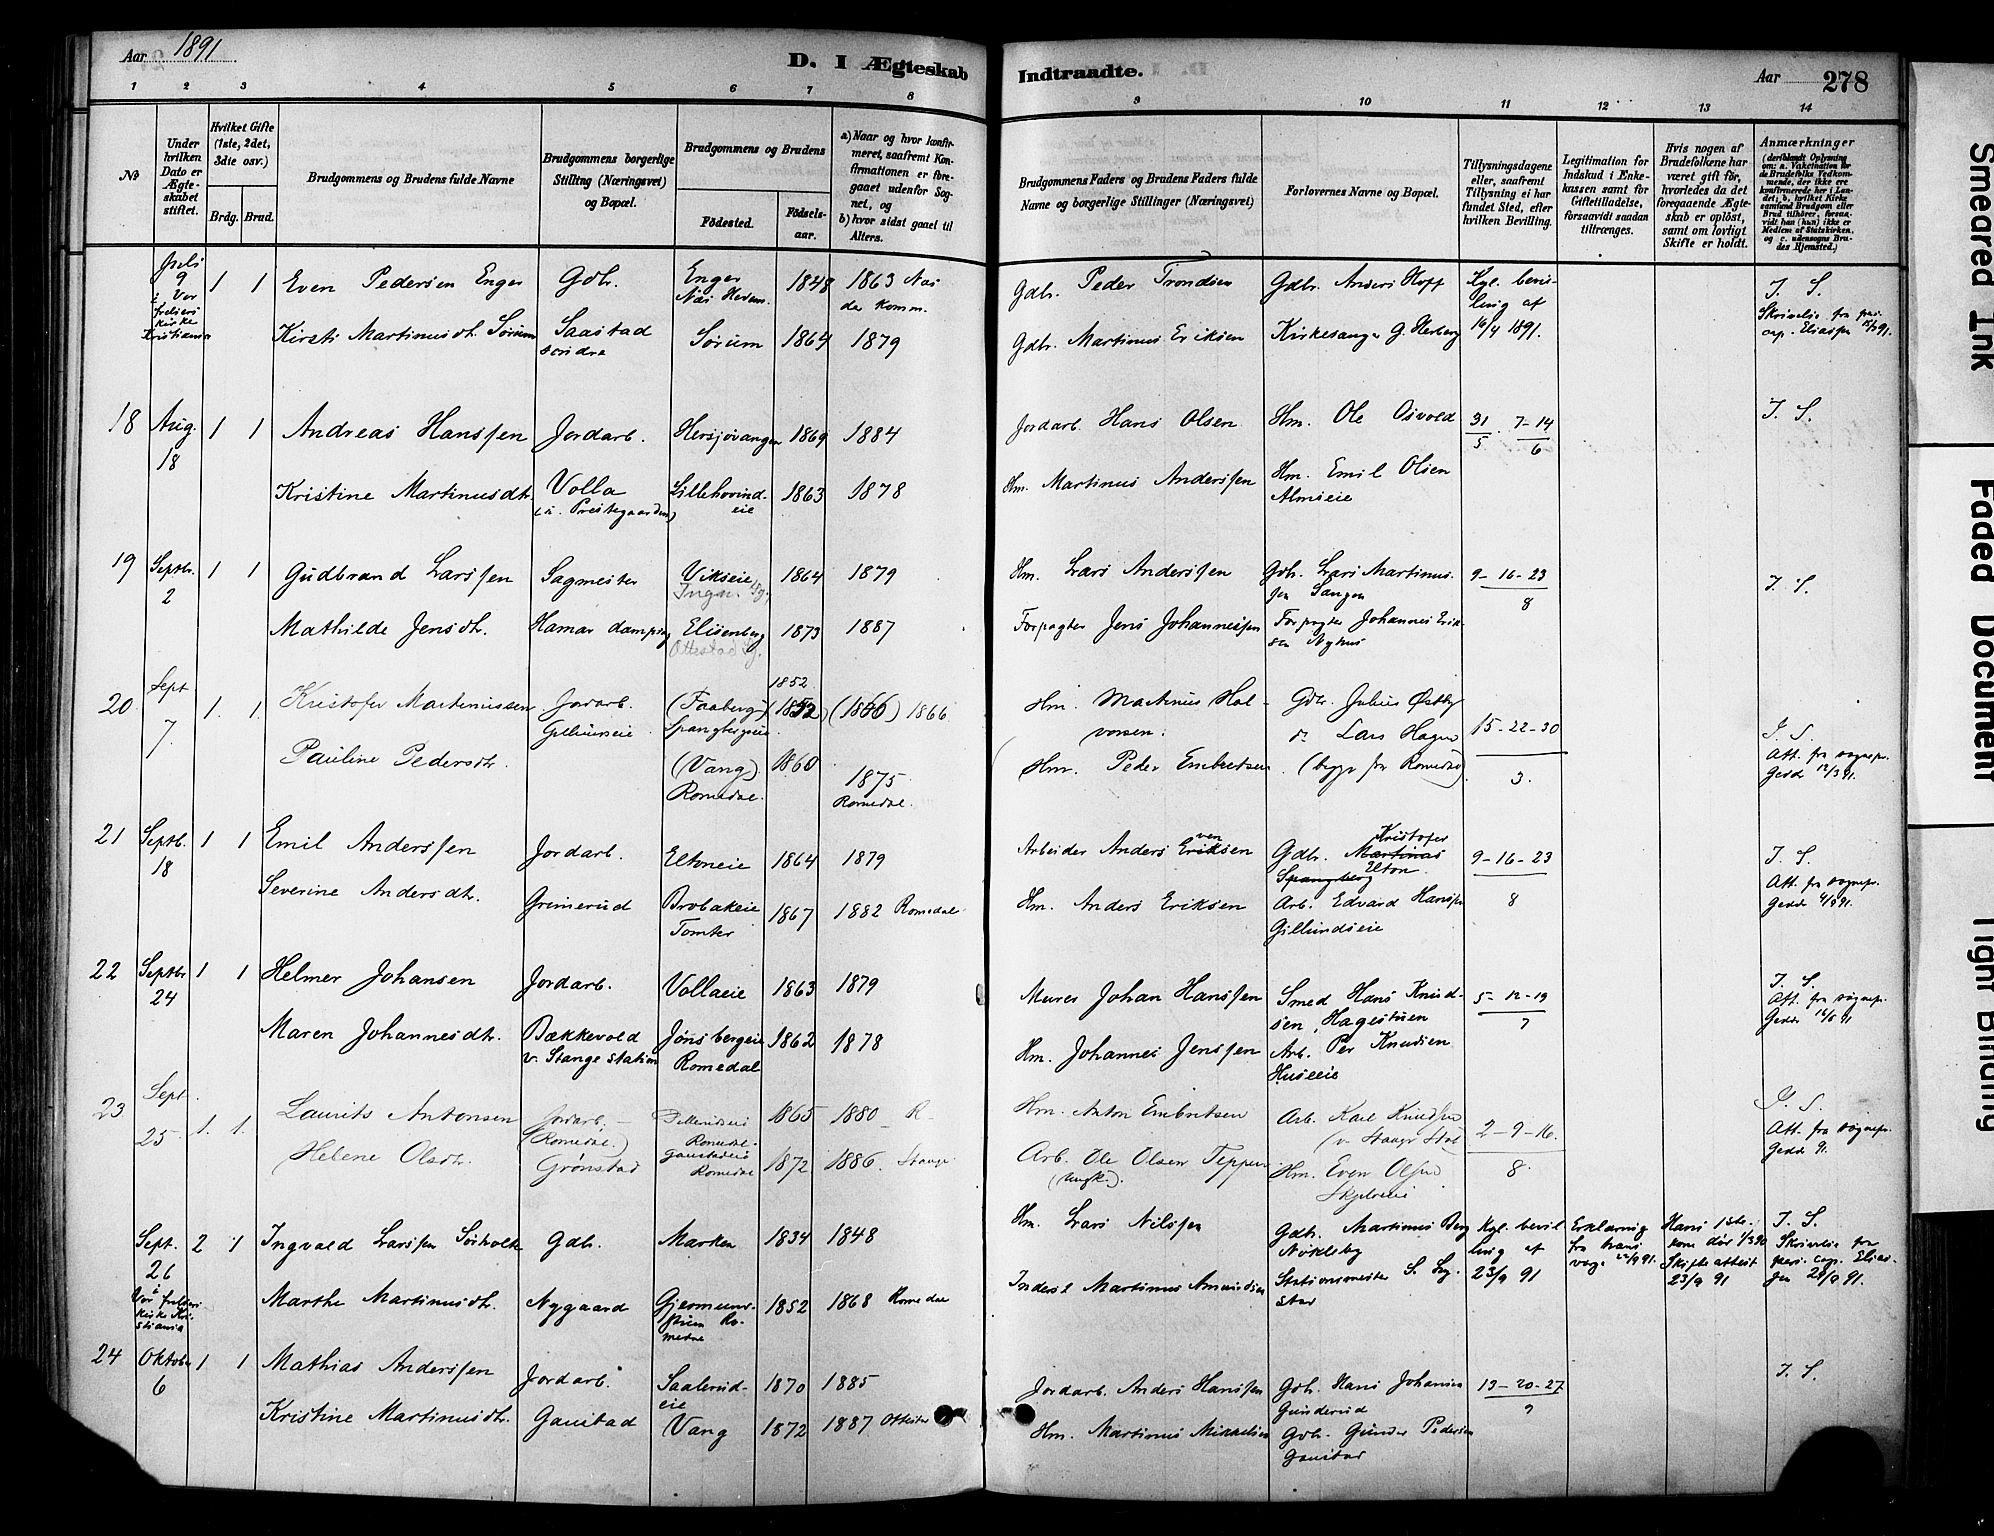 Aar 1891
D. I Ægteskab
Indtraadte.
Aar 278
1 2 3 4 5 6 7 8
9 10 11 12 13 14
No
Under hvilken Dato er Ægteskabet stiftet.
Hvilket Gifte (1ste, 2det, 3die osv.)
Brdg. Brud.
Brudgommens og Brudens fulde Navne
Brudgommens borgerlige Stilling (Næringsvei) og Bopæl.
Brudgommens og Brudens
Födested. Födselsaar.
a) Naar og hvor konfirmeret, saafremt Konfirmationen er foregaaet udenfor Sognet, og
b) hvor sidst gaaet til Alters.
Brudgommens Faders og Brudens Faders fulde Navne og borgerlige Stillinger (Næringsvei)
Forlovernes Navne og Bopæl.
Tillysningsdagene eller, saafremt Tillysning ei har fundet Sted, efter hvilken Bevilling.
Legitimation for Indskud i Enkekassen samt for Giftetilladelse, forsaavidt saadan tiltrænges.
Hvis nogen af Brudefolkene har været gift för, hvorledes da det foregaaende Ægteskab er oplöst, samt om lovligt Skifte er holdt.
Anmærkninger
(deriblandt Oplysning om: a. Vakcination for de Brudefolks Vedkommende, der ikke ere konfirmerede her i Landet; b. hvilket Kirkesamfund Brudgom eller Brud tilhörer, forsaavidt han (hun) ikke er Medlem af Statskirken, og c. udensogns Brudes Hjemsted.)
Juli 9 i Vor frelsers kirke Kristiania 1 1 Even Pedersen Enger Gdb. Enger Næs Hedem. 1848 1863 Næs
Gdb. Peder Trondsen Gdb. Anders Hoff Kgl. bevilling af 16/4 1891. I. S.
Kirsti Martinusdtr. Sørum Saastad søndre Sørum 1864 1879
Gdb. Martinus Eriksen Kirkesanger G. Herberg
18 Aug. 18 1 1 Andreas Hanssen Jordarb. Hersjøvangen 1869 1884
Jordarb. Hans Olsen Hm. Ole Osvold 31/5 7-14/6 I. S.
Kristine Martinusdtr. Volla (u. Prestegaarden) Lillehovindeie 1863 1878
Hm. Martinus Anderssen Hm. Emil Olsen Almseie
19 Septbr. 2 1 1 Gudbrand Larssen Sagmester Vikseie 1864 1879
Hm. Lars Anderssen Gdb. Lars Martinussen Sangen 9-16-23/8 I. S.
Mathilde Jensdtr. Hamar dampsag Elisenberg Ottestad Sg. 1873 1887
Forpagter Jens Johannessen Forpagter Johannes Eriksen Nyhus
20 Sept 7. 1. 1. Kristofer Martinussen Jordarb. Gillundseie (Faaberg) Spangbergeie 1852 (1866) 1866
Hm. Martinus Halvorsen. Gdb. Julius Østby 15-22-30/3. I. S.
Pauline Pedersdtr. (Vang) Romedal. 1860 1875 Romedal.
Hm. Peder Embretsen Lars Hagen (begge fra Romedal) Att. fra sognepr. Gedde 12/3 91.
21 Septb. 18 1 1 Emil Anderssen Jordarb. Eltoneie 1864 1879
Arbeider Anders Eriksen Gdb. Martinus Spangberg Kristofer Elton 9-16-23/8 I. S.
Severine Andersdtr. Grimerud Brobakeie Tomter 1867 1882 Romedal
Hm. Anders Eriksen Arb. Edvard Hanssen Gillundseie Att. fra sognepr. Gedde 4/9 91.
22 Septbr 24 1 1 Helmer Johansen Jordarb. Vollaeie 1863 1879
Murer Johan Hanssen Smed Hans Knudsen, Hagestuen 5-12-19/7 I. S.
Maren Johannesdtr. Bækkevold v. Stange station Jønsbergeie Romedal 1862 1878
Hm. Johannes Jenssen Arb. Per Knudsen Huseeie Att. fra sognepr. Gedde 16/6 91
23 Sept. 25 1. 1. Laurits Antonsen Jordarb. (Romedal.) Romedal. 1865 1880 R.
Hm. Anton Embretsen Arb. Karl Knudsen (v. Stange Stat. 2-9-16./8. I. S.
Helene Olsdtr. Grønstad Gaustadeie Romedal 1872 1886. Stange.
Arb. Ole Olsen Teppen (ungk.). Hm. Even Olsen Att. fra sognepr. Gedde 91.
Sept. 26 i Vor frelsers kirke Kristiania 2 1 Ingvald Larssen Sørholte Gdb. Marken 1834 1848
Hm. Lars Nilssen Gdb. Martinus Berg Nökleby Kgl. bevilling af 23/9 91 Erklæring fra hans 22/9 91. Hans 1ste kone død 1/3 90 Skifteattest 23/9 91 I. S.
Marthe Martinusdtr. Nygaard Gjermundstuen Romedal 1852 1868 Romedal
Inderst Martinus Amundsen Stationsmester S. Lystad
24 Oktober 6 1 1 Mathias Anderssen Jordarb. Saalerudeie 1870 1885
Jordarb. Anders Hanssen Gdb. Hans Johansen Gunderud 13-20-27/9 I. S.
Kristine Martinusdtr. Gaustad Vang 1872 1887 Ottestad
Hm. Martinus Mikkelsen Gdb. Gunder Pedersen Gaustad
Smeared Ink
Faded Document
Tight Binding